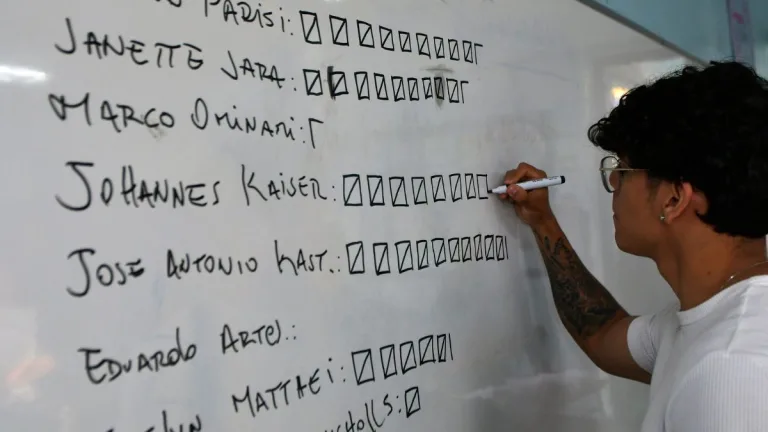 PARISI:
JANETTE JARA:
MARCO OMINAMI:
JOHANNES KAISER:
JOSE ANTONIO KAST.:
EDUARDO ARTE).:
MATTHEI: